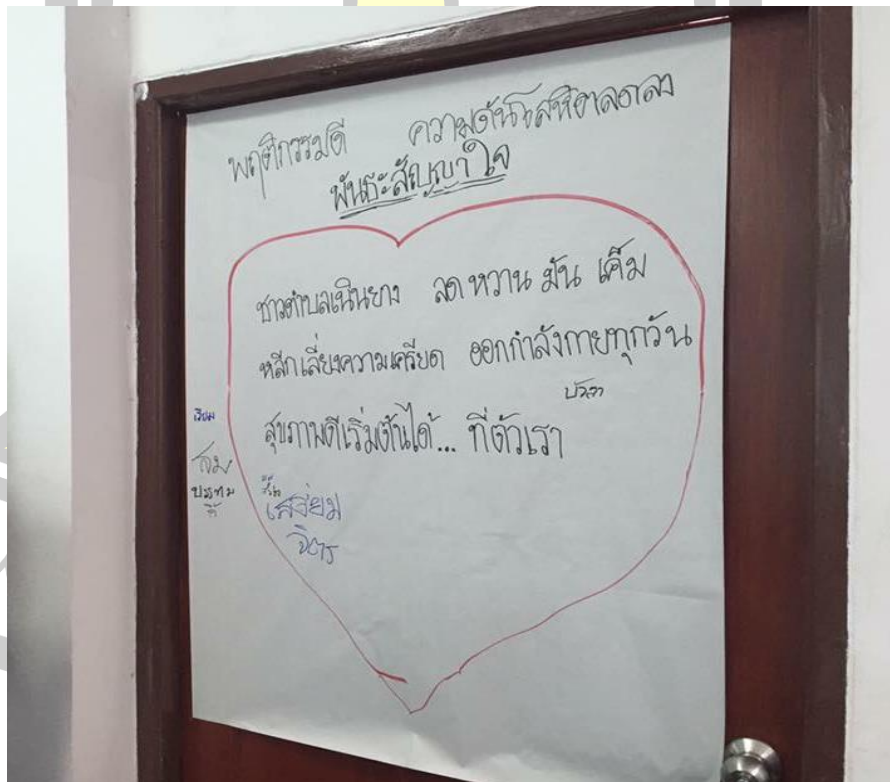 พฤติกรรมดี ความดันโลหิตลดลง
พันธะสัญญาใจ
ชาวตำบลเนินยาง ลด หวาน มัน เค็ม
หลีกเลี่ยงความเครียด ออกกำลังกายทุกวัน
สุขภาพดีเริ่มต้นได้... ที่ตัวเรา
เสงี่ยม
จิตร